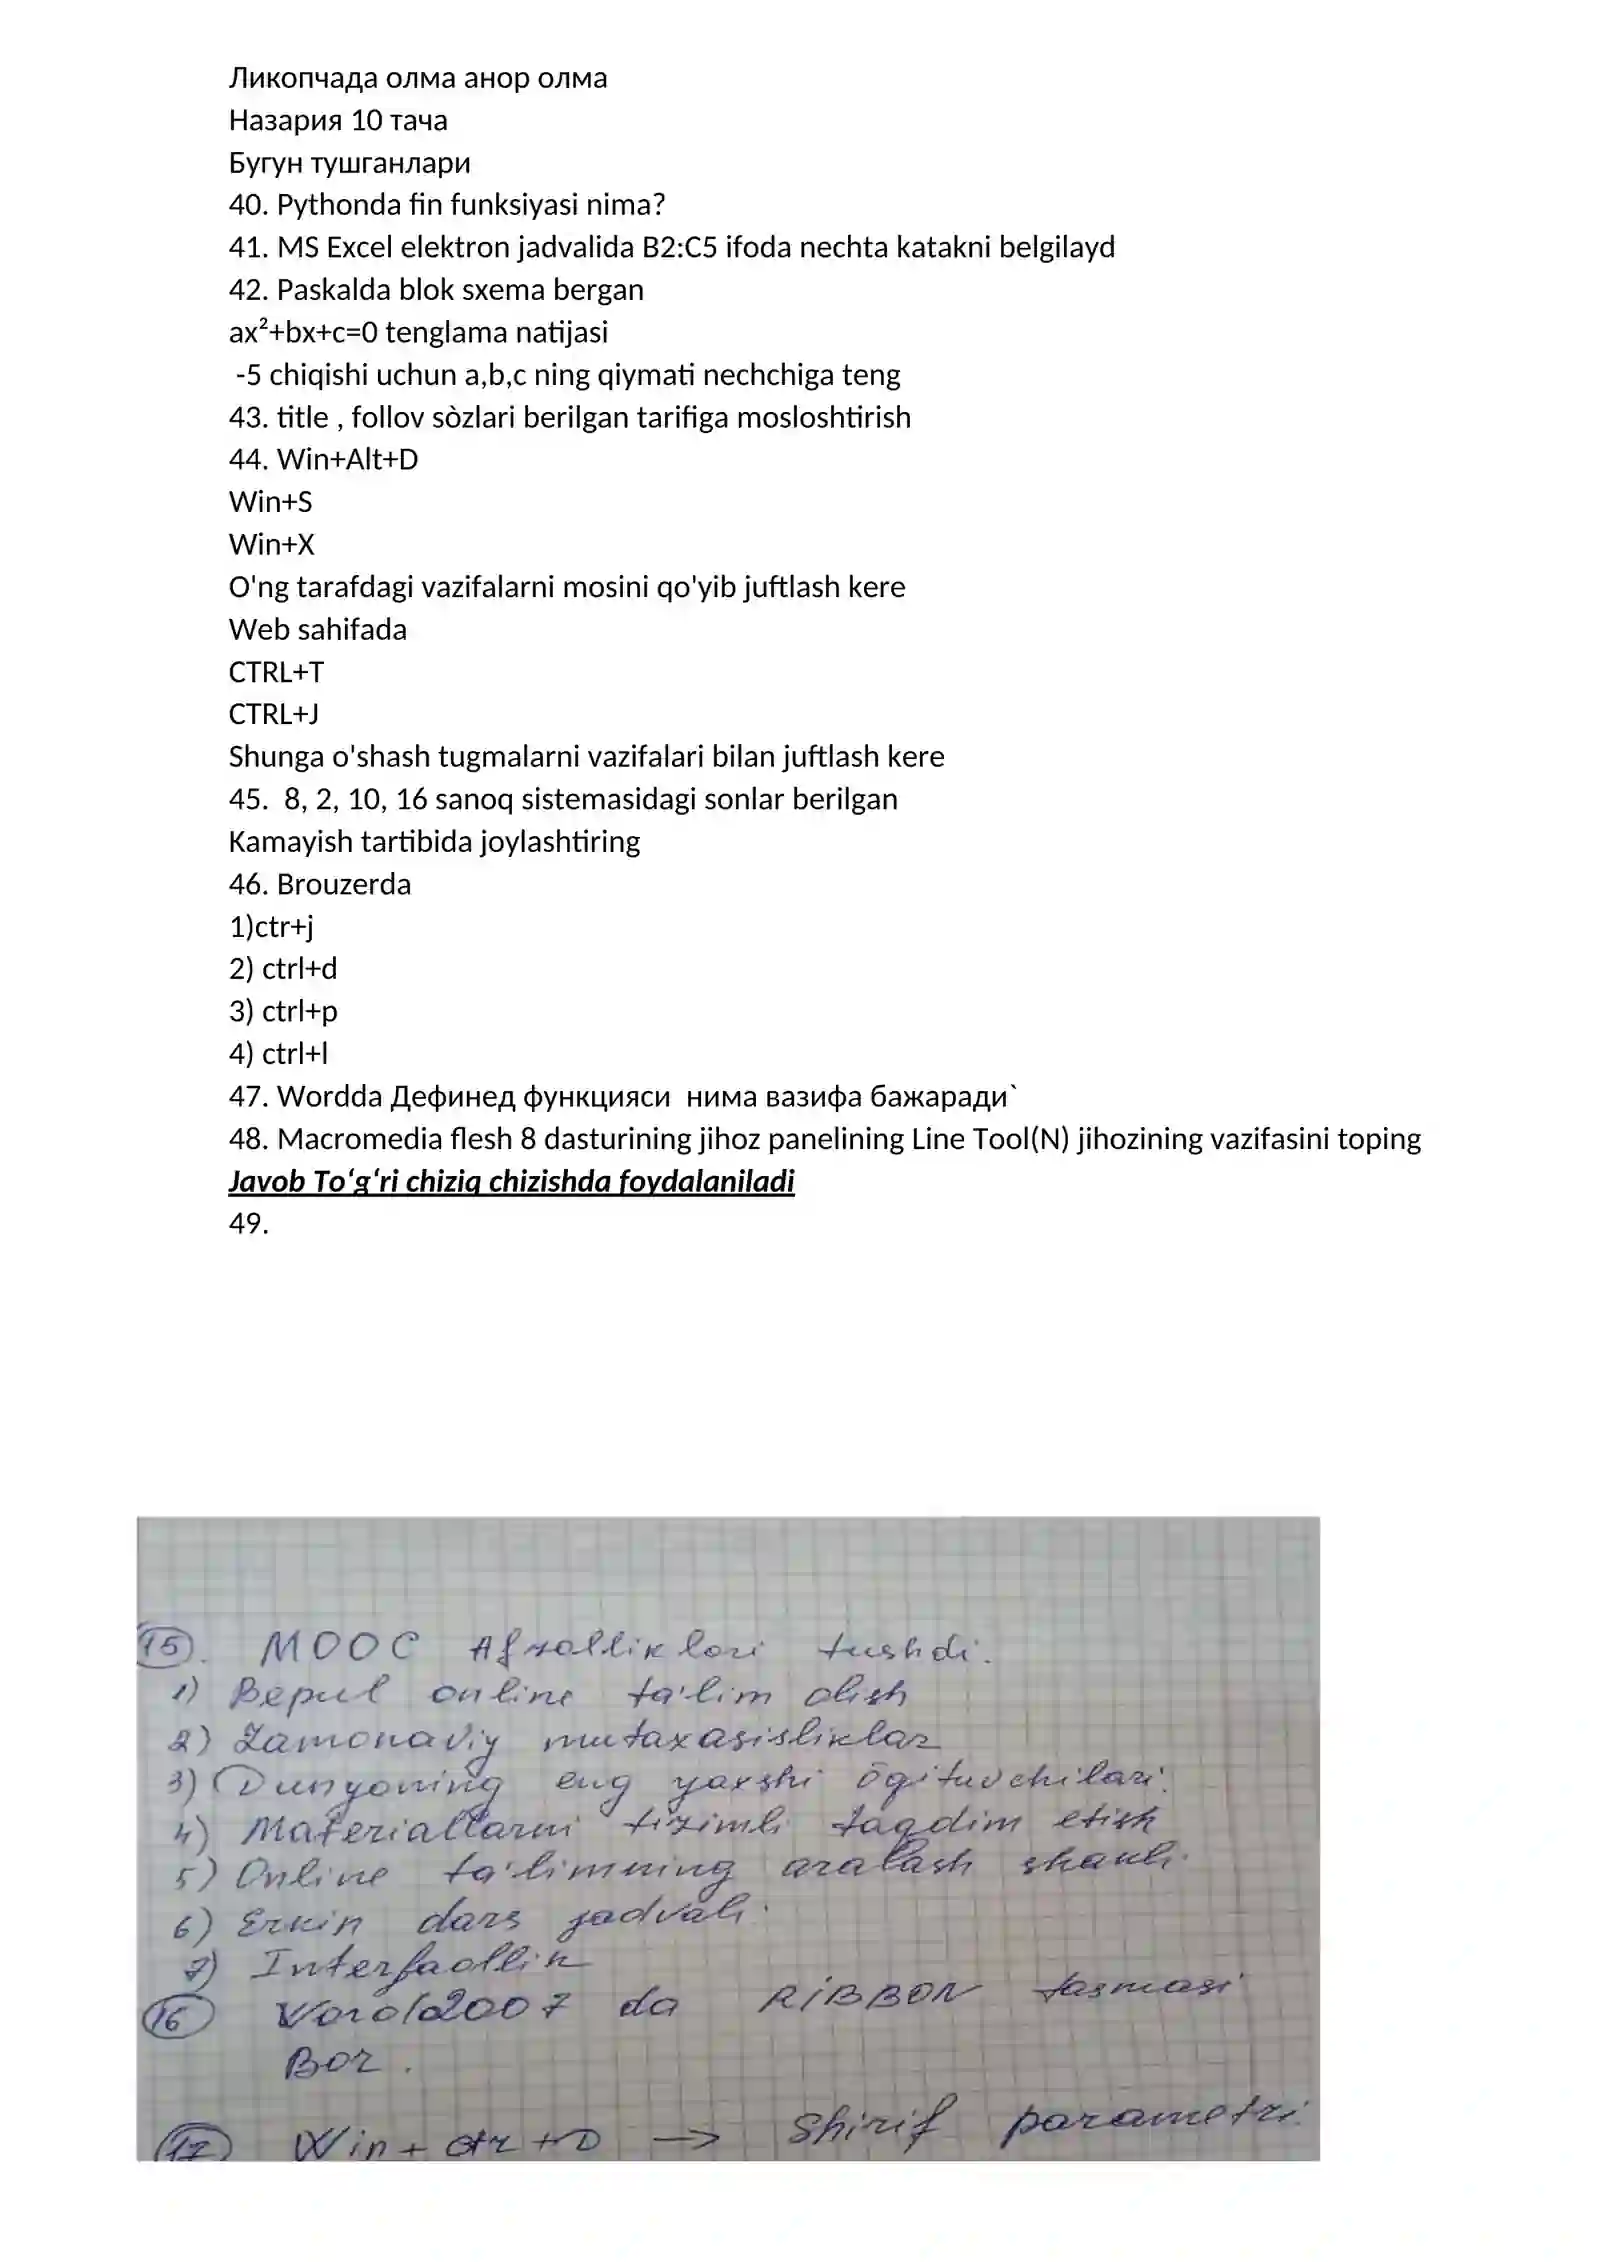 Ликопчада олма анор олма
Назария 10 тача
Бугун тушганлари
40. Pythonda fin funksiyasi nima?
41. MS Excel elektron jadvalida B2:C5 ifoda nechta katakni belgilayd
42. Paskalda blok sxema bergan
ax²+bx+c=0 tenglama natijasi
-5 chiqishi uchun a,b,c ning qiymati nechchiga teng
43. title , follov sòzlari berilgan tarifiga mosloshtirish
44. Win+Alt+D
Win+S
Win+X
O'ng tarafdagi vazifalarni mosini qo'yib juftlash kere
Web sahifada
CTRL+T
CTRL+J
Shunga o'shash tugmalarni vazifalari bilan juftlash kere
45.  8, 2, 10, 16 sanoq sistemasidagi sonlar berilgan
Kamayish tartibida joylashtiring
46. Brouzerda
1)ctr+j
2) ctrl+d
3) ctrl+p
4) ctrl+l
47. Wordda Дефинед функцияси  нима вазифа бажаради`
48. Macromedia flesh 8 dasturining jihoz panelining Line Tool(N) jihozining vazifasini toping
Javob Toʻgʻri chiziq chizishda foydalaniladi
49.
15. MOOC Afzalliklari tushdi.
1) Bepul online ta'lim olish
2) Zamonaviy mutaxasisliklar
3) Dunyoning eng yaxshi ōgituvchilari.
4) Materiallarni tizimli taqdim etish
5) Online ta'limning aralash shakli.
6) Erkin dars jadvali.
7) Interfaollik
16 Word2007 da RiBBON tasmasi
Bor.
17 Win + ctr + D → Shirif parametri.